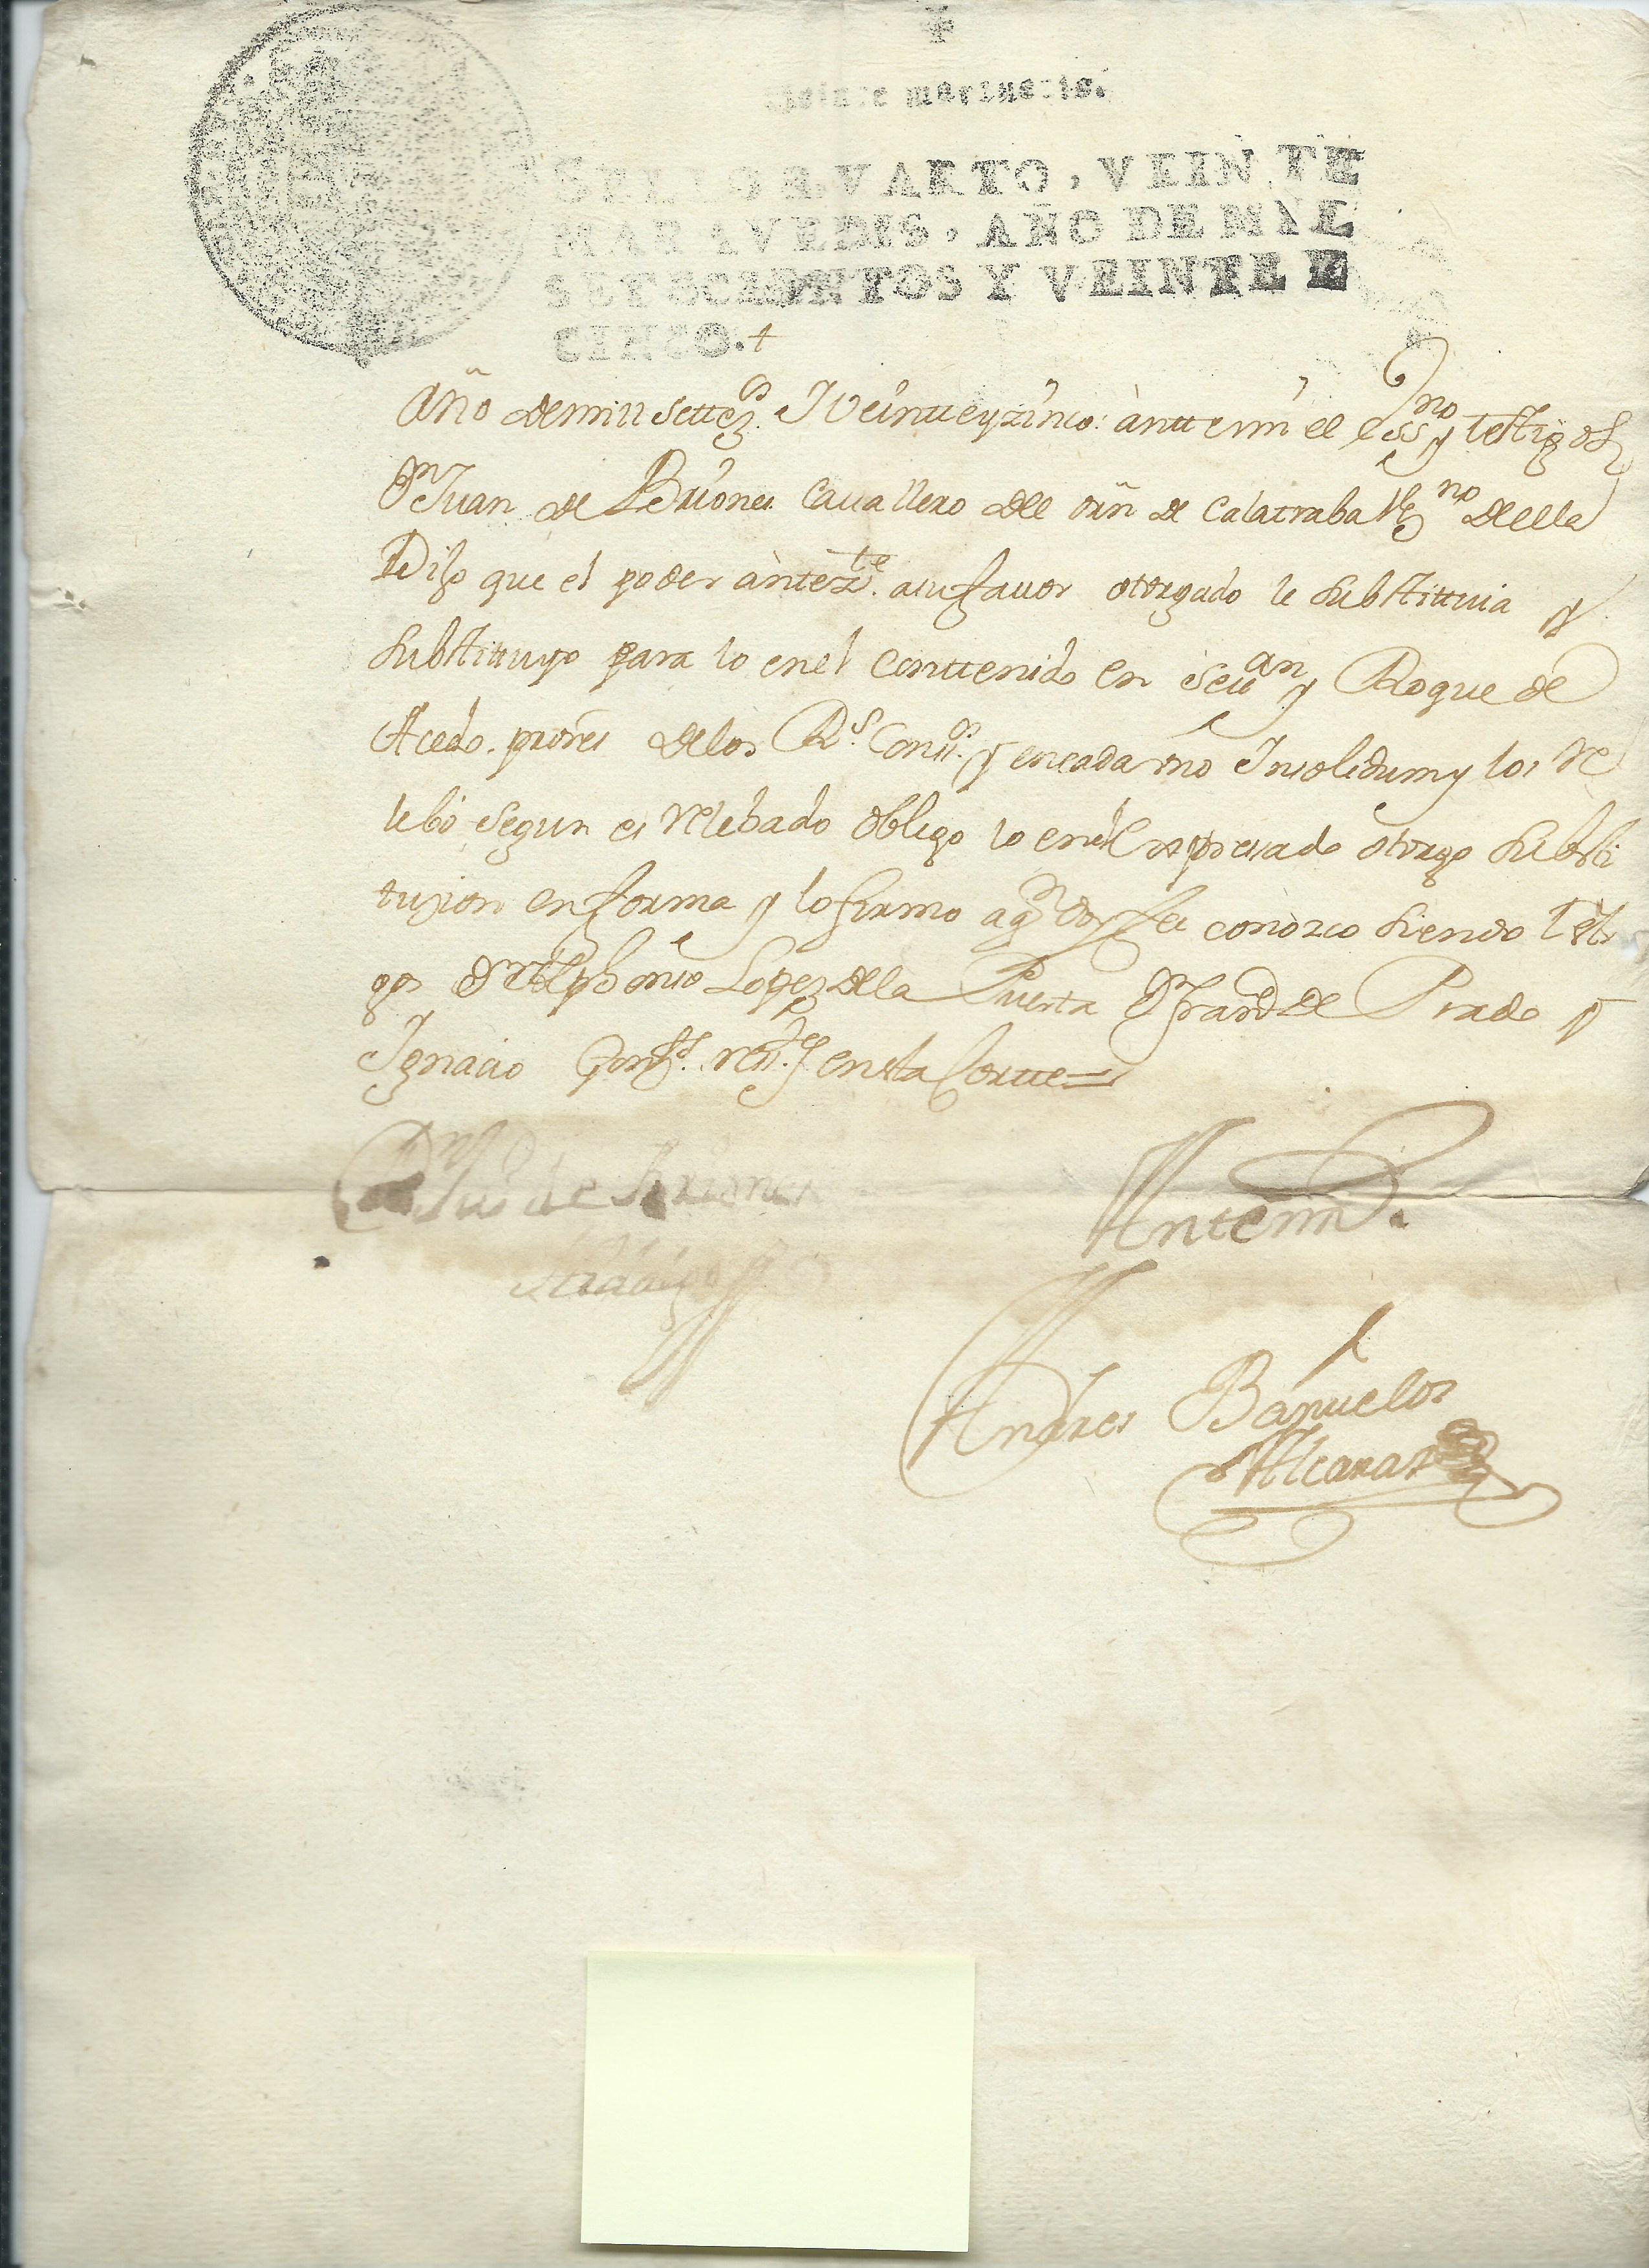 maravedis.
SELLO QVARTO, VEINTE
MARAVEDIS, AÑO DE MIL
SETECIENTOS Y VEINTE Y
CINCO. +
Año de mill settez.os I veintteyzinco: antte mi el essno y testigos
Dn Juan de Briones Cauallero del orñ de Calatraba Vzno de ella
Dijo que el poder antezte. a su fauor otorgado le substittuia y
substittuyo para lo en el Conttenido en Seuan y Roque de
Acedo. prores de los Rs. Conss.os y en cada vno Insolidum y los Re
lebo segun es Relebado obligo lo en el expresado otorgo substi
tuzion en forma y lo firmo a qn doy fee conozco siendo testi
gos Dn Alphonso Lopez de la Puerta Dn Franco de Prado y
Ignacio Gonz. ress.tes en esta Cortte =
Dn Juo de Briones
Antemi.
Andres Bañuelos
Alcaraz